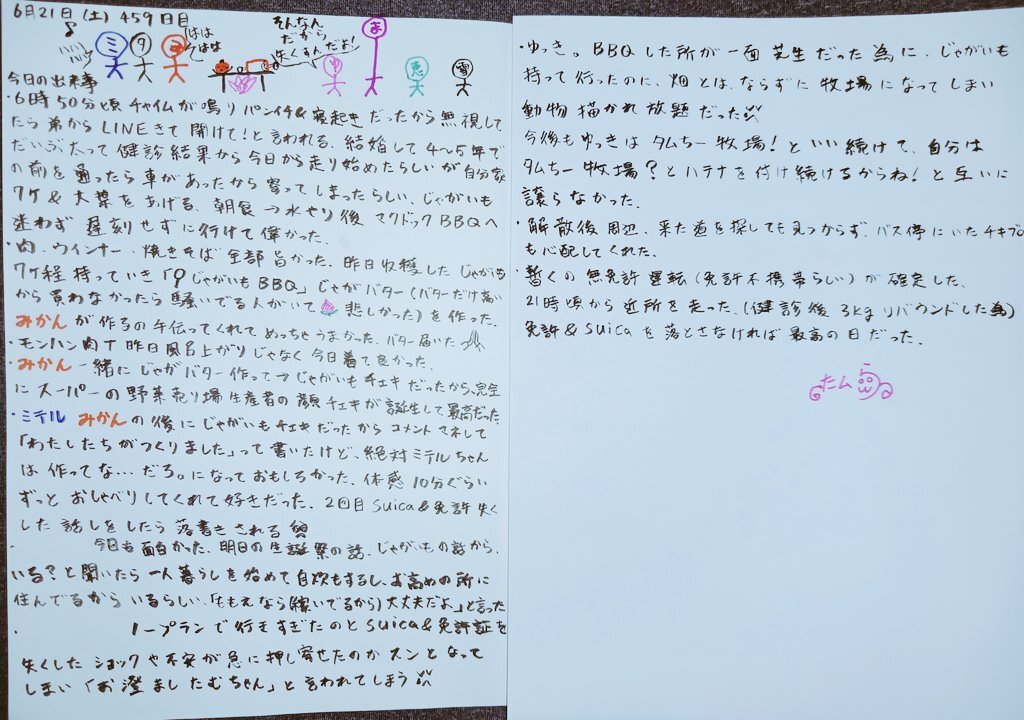 6月21日(土) 459日目
ミ
タ
み
ははは
そんなん
だから
失くすんだよ!
ゆ
ま
恵
雪
今日の出来事
・6時50分頃チャイムが鳴りパンイチ&寝起きだったから無視して
たら弟からLINEきて開けて!と言われる、結婚して4〜5年で
だいぶ太って健診結果から今日から走り始めたらしいが自分家
の前を通ったら車があったから寄ってしまったらしい、じゃがいも
7ケ&大葉をあげる、朝食→水やり後マクドックBBQへ
迷わず遅刻せずに行けて偉かった。
・肉、ウインナー、焼きそば全部旨かった、昨日収穫したじゃがいも
7ケ程持っていき「9じゃがいもBBQ」じゃがバター(バターだけ高い
から買わなかったら騒いでる人がいて悲しかった)を作った、
みかんが作るの手伝ってくれてめっちゃうまかった、バター届いた
・モンハン肉T昨日風呂上がりじゃなく今日着て良かった。
・みかん一緒にじゃがバター作って→じゃがいもチェキだったから、完全
にスーパーの野菜売り場生産者の顔チェキが誕生して最高だった
・ミテル みかんの後にじゃがいもチェキだったからコメントさネして
「わたしたちがつくりました」って書いたけど、絶対ミテルちゃん
は作ってな…だろ。になっておもしろかった、体感10分ぐらい
ずっとおしゃべりしてくれて好きだった。2回目Suica&免許失く
した話しをしたら落書きされる
・今日も面白かった、明日の生誕祭の話、じゃがいもの話から、
いる?と聞いたら一人暮らしを始めて自炊もするし、お高めの所に
住んでるからいるらしい、「ももえなら(稼いでるから)大丈夫だよ」と言った
・ノープランで行きすぎたのとSuica&免許証を
失くしたショックや不安が急に押し寄せたのかスンとなって
しまい「お澄ましたむちゃん」と言われてしまう
・ゆっき。BBQした所が一面芝生だった為に、じゃがいも
持って行ったのに、畑とは、ならずに牧場になってしまい
動物描かれ放題だった
今後もゆっきはタムちー牧場!といい続けて、自分は
タムちー牧場?とハテナを付け続けるからね!と互いに
譲らなかった。
・解散後周辺、来た道を探しても見つからず、バス停にいたチキプロ
も心配してくれた。
・暫くの無免許運転(免許不携帯らしい)が確定した。
21時頃から近所を走った。(健診後3kgリバウンドした為)
免許&Suicaを落とさなければ最高の日だった。
たム